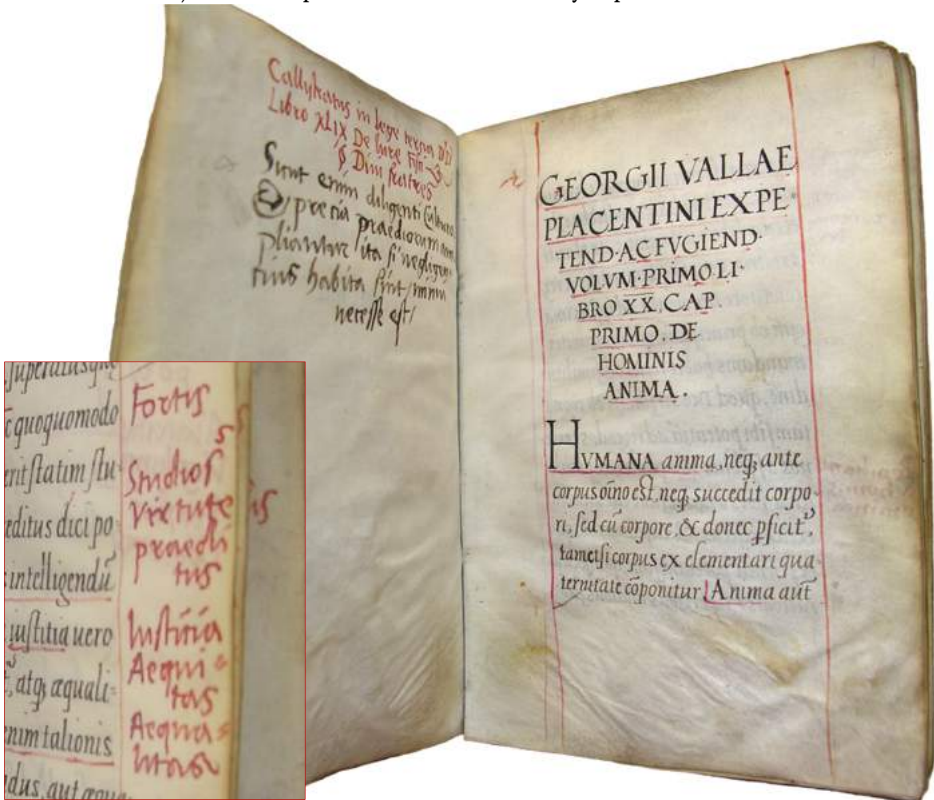 Callystratus in lege tertia D D
Libro XLIX De Iure Fisci
§ Divi fratres
Sicut enim diligenti Cultura
pretia praediorum am
pliantur ita si negligen
tius habita sint minui
necesse est/
GEORGII VALLAE
PLACENTINI EXPE
TEND·AC FVGIEND·
VOLVM·PRIMO LI·
BRO XX, CAP.
PRIMO. DE
HOMINIS
ANIMA.
HVMANA anima, neq; ante
corpus oĩno est, neq; succedit corpo-
ri, sed cũ corpore, & donec pficit,
tametsi corpus ex elementari qua
ternitate cõponitur. Anima aũt
quoquomodo
erit statim stu
editus dici po
intelligendũ
iustitia uero
atq; æquali-
enim talionis
dus, aut æqua
Fortis
Studios
virtute
praedi
tus
Iustitia
Aequi-
tas
Aequa-
litas